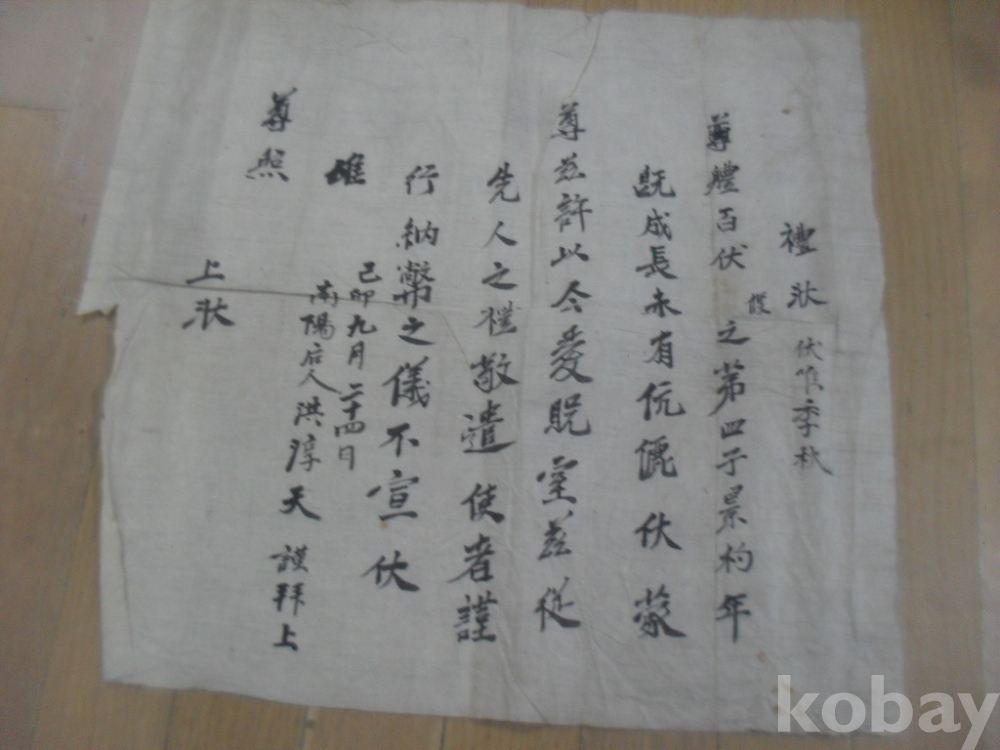 禮狀 伏惟季秋
尊體百伏 僕之第四子景杓年
旣成長未有伉儷伏蒙
尊慈許以令愛貺室茲從
先人之禮敬遣使者謹
行納幣之儀不宣伏
惟
己卯九月二十四日
尊照
南陽后人洪淳天謹拜上
上狀
kobay